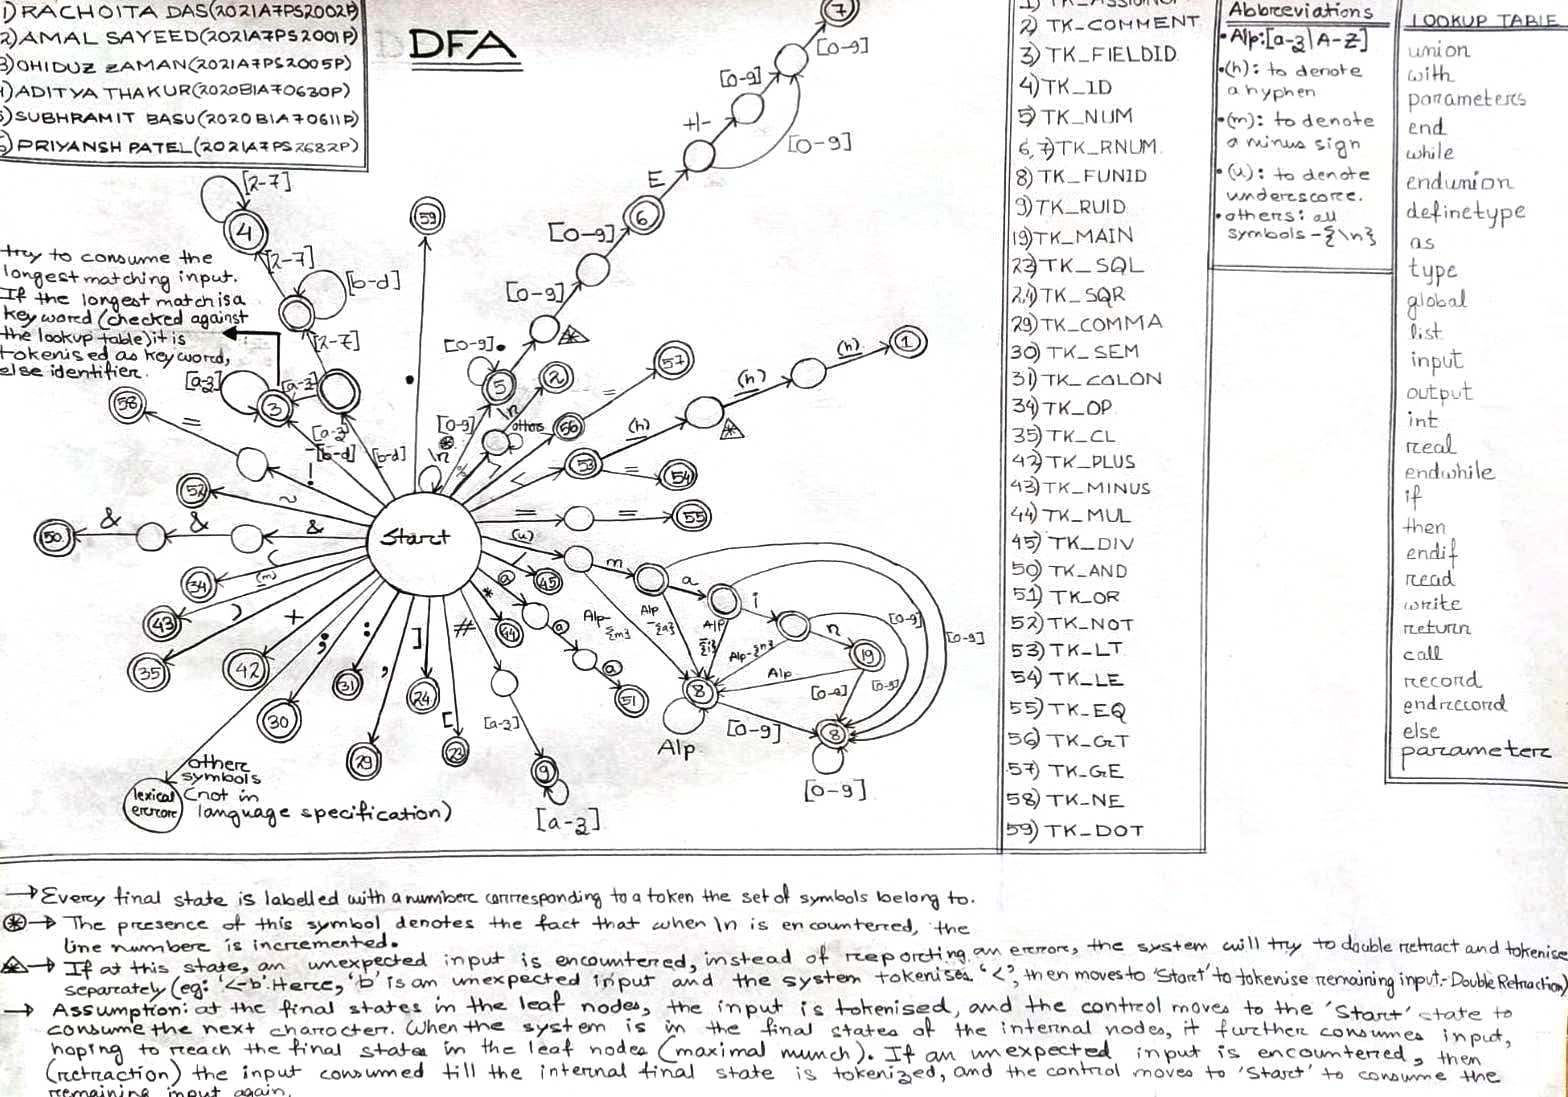 1) RACHOITA DAS(2021A7PS2002P)
2) AMAL SAYEED(2021A7PS2001P)
3) OHIDUZ ZAMAN(2021A7PS2005P)
4) ADITYA THAKUR(2020B1A70630P)
5) SUBHRAMIT BASU(2020B1A70611P)
6) PRIYANSH PATEL(2021A7PS2682P)
DFA
try to consume the
longest matching input.
If the longest match is a
keyword (checked against
the lookup table) it is
tokenised as keyword,
else identifier.
[2-7]
4
[2-7]
[b-d]
[2-7]
[a-z]
3
[a-z]
[a-z]
-[b-d]
[b-d]
59
.
7
[0-9]
[0-9]
+/-
[0-9]
E
6
[0-9]
[0-9]
[0-9]
.
5
[0-9]
\n
2
\n
others
%
56
=
57
>
<
53
(h)
(h)
(h)
1
=
54
=
=
55
58
=
!
52
~
50
&
&
&
Start
(
34
(m)
43
)
35
+
42
;
30
:
31
,
29
]
24
[
23
#
[a-z]
9
[a-z]
*
44
/
45
@
@
@
51
(u)
m
a
i
n
19
Alp-
{m}
Alp
-{a}
Alp
-{i}
Alp-{n}
Alp
8
Alp
[0-9]
[0-9]
[0-9]
[0-9]
[0-9]
8
[0-9]
other
symbols
(not in
language specification)
lexical
error
1) TK_ASSIGNOP
2) TK_COMMENT
3) TK_FIELDID
4) TK_ID
5) TK_NUM
6,7) TK_RNUM
8) TK_FUNID
9) TK_RUID
19) TK_MAIN
23) TK_SQL
24) TK_SQR
29) TK_COMMA
30) TK_SEM
31) TK_COLON
34) TK_OP
35) TK_CL
42) TK_PLUS
43) TK_MINUS
44) TK_MUL
45) TK_DIV
50) TK_AND
51) TK_OR
52) TK_NOT
53) TK_LT
54) TK_LE
55) TK_EQ
56) TK_GT
57) TK_GE
58) TK_NE
59) TK_DOT
Abbreviations
• Alp:[a-z|A-Z]
•(h): to denote
a hyphen
•(m): to denote
a minus sign
•(u): to denote
underscore.
•others: all
symbols-{\n}
LOOKUP TABLE
union
with
parameters
end
while
endunion
definetype
as
type
global
list
input
output
int
real
endwhile
if
then
endif
read
write
return
call
record
endrecord
else
parameter
→ Every final state is labelled with a number corresponding to a token the set of symbols belong to.
→ The presence of this symbol denotes the fact that when \n is encountered, the
line number is incremented.
→ If at this state, an unexpected input is encountered, instead of reporting an error, the system will try to double retract and tokenise
separately (eg: '<-b'. Here, 'b' is an unexpected input and the system tokenises '<', then moves to 'Start' to tokenise remaining input.- Double Retraction)
→ Assumption: at the final states in the leaf nodes, the input is tokenised, and the control moves to the 'Start' state to
consume the next character. When the system is in the final states of the internal nodes, it further consumes input,
hoping to reach the final states in the leaf nodes (maximal munch). If an unexpected input is encountered, then
(retraction) the input consumed till the internal final state is tokenized, and the control moves to 'Start' to consume the
remaining input again.